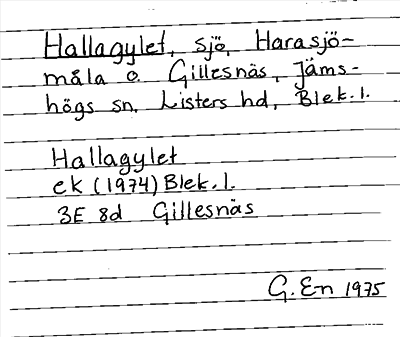 Hallagylet, sjö, Harasjö-
måla o. Gillesnäs, Jäms-
högs sn, Listers hd, Blek.l.
Hallagylet
ek (1974) Blek.l.
3E 8d Gillesnäs
G. En 1975